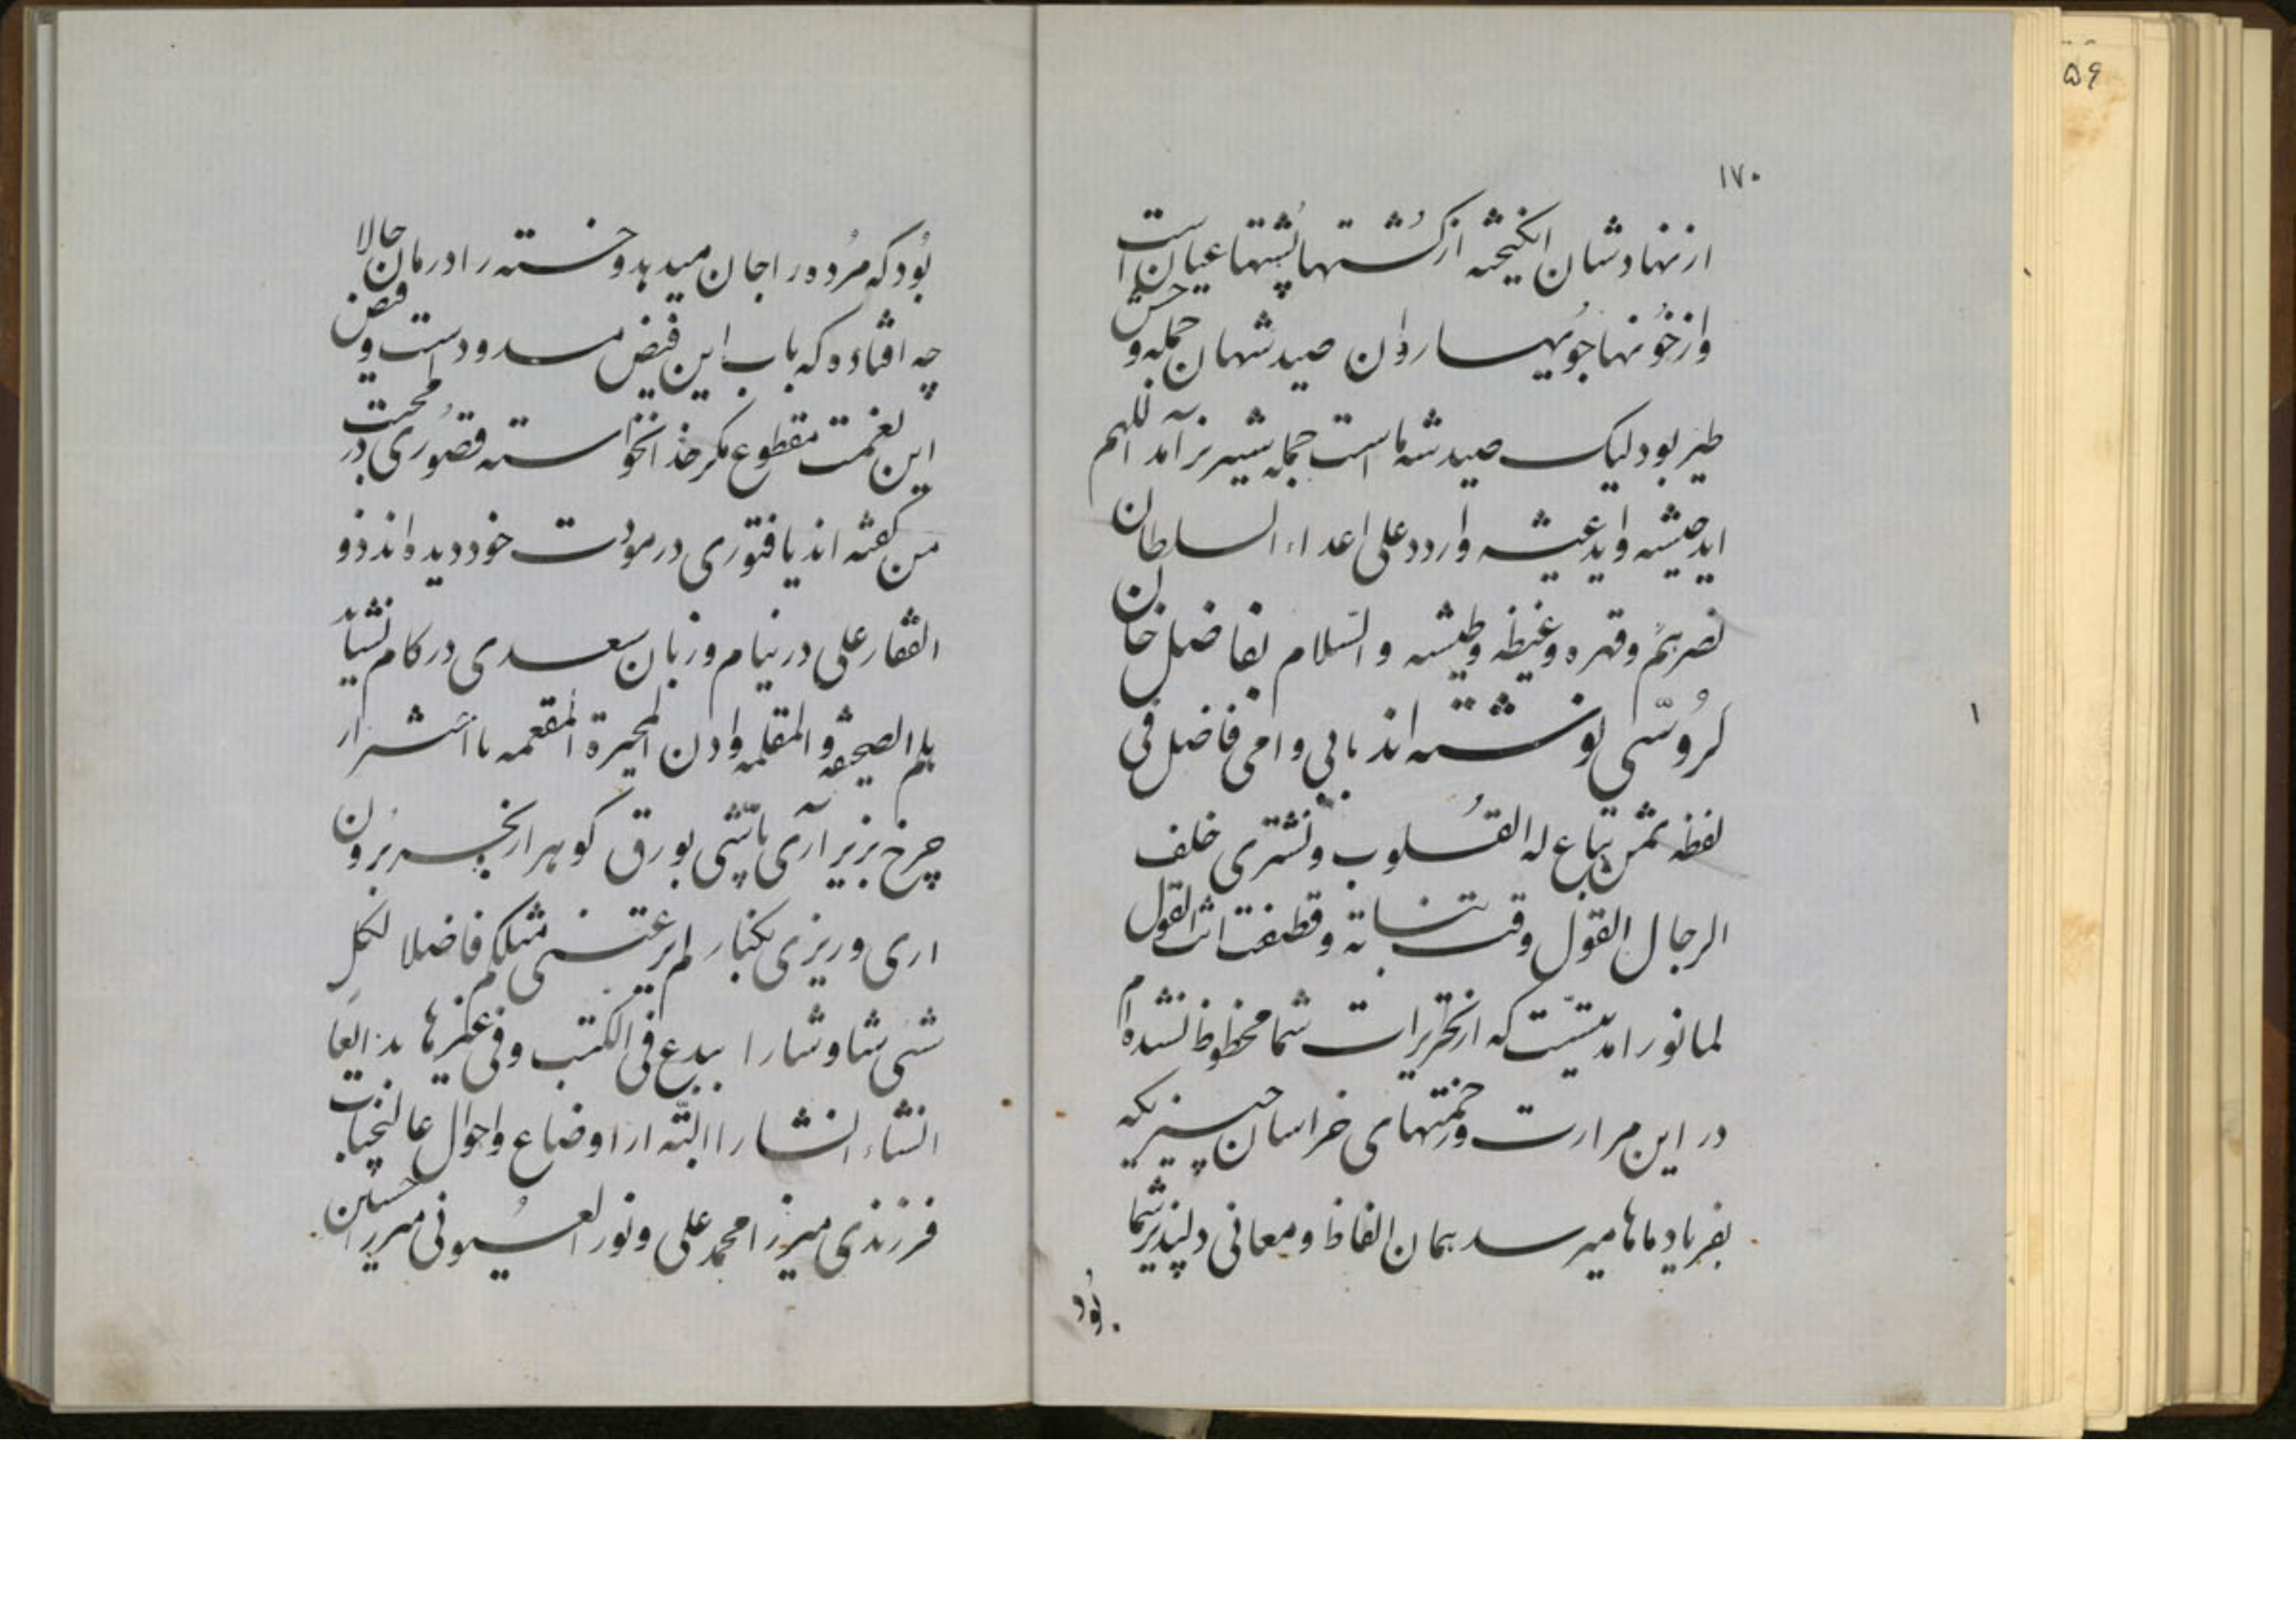 ۵۶
۱۷۰
از نهادشان انگیخته از کُشتها پُشتها عیان است
و از خُونها جُویها روان صید شهان جمله وحش و
طیر بود لیک صید شه ماست جمله شیر نر آمد اللهم
اید جیشه و اید عیشه و اردد علی اعداء السلطان
نصرهم و قهره و غیظه و طیشه والسّلام بفاضل خان
گرُوسّی نوشته اند بابی و امی فاضل فی
لفظه ثمن تباع له القُلوب و تشتری خلف
الرجال القول وقت نباته و قطفت انت القول
لما نورا مدتیست که از تحریرات شما محظوظ نشده ام
در این مرارت و زحمتهای خراسان چیزیکه
بفریاد ماها میرسد همان الفاظ و معانی دلپذیر شما
بُود
بُود که مُرده را جان میدهد و خسته را درمان حالا
چه افتاده که باب این فیض مسدود است و فیض
این نعمت مقطوع مگر خدا نخواسته قصُوری در محبت
من گفته اند یا فتوری در مودت خود دیده اند ذو
الفقار علی در نیام و زبان سعدی در کام نشاید
یلم الصحیفه و المقلمه وادن المحبرة المفعمه تا
چرخ بزیر آری پاشی بورق گوهر از بحر برون
اری و ریزی بکنار لم یر عتنمی مثلکم فاضلا لکل
شئی شا و شارا یبدع فی الکتب و فی غیرها بدایعا
انشاء انشارا البته از اوضاع و احوال عالیجناب
فرزندی میرزا محمد علی و نور العیُونی میرزا حسین